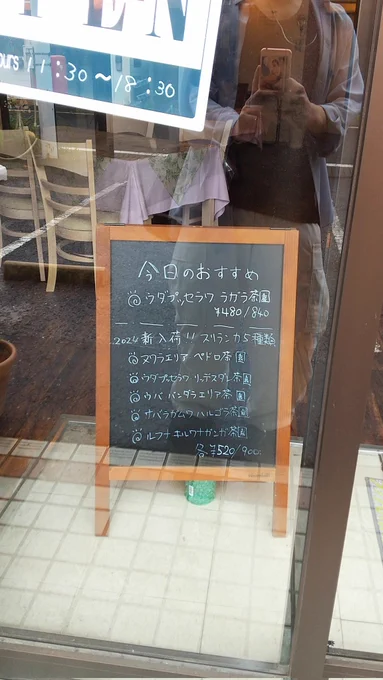 OPEN
ours 11:30〜18:30
今日のおすすめ
ウダプッセラワ ラガラ茶園
¥480/840
2024新入荷!! スリランカ5種類
ヌワラエリア ペドロ茶園
ウダプッセラワ リッデスダレ茶園
ウバ バンダラエリア茶園
サバラガムワ ハルゴラ茶園
ルフナ キルワナガンガ茶園
各¥520/900